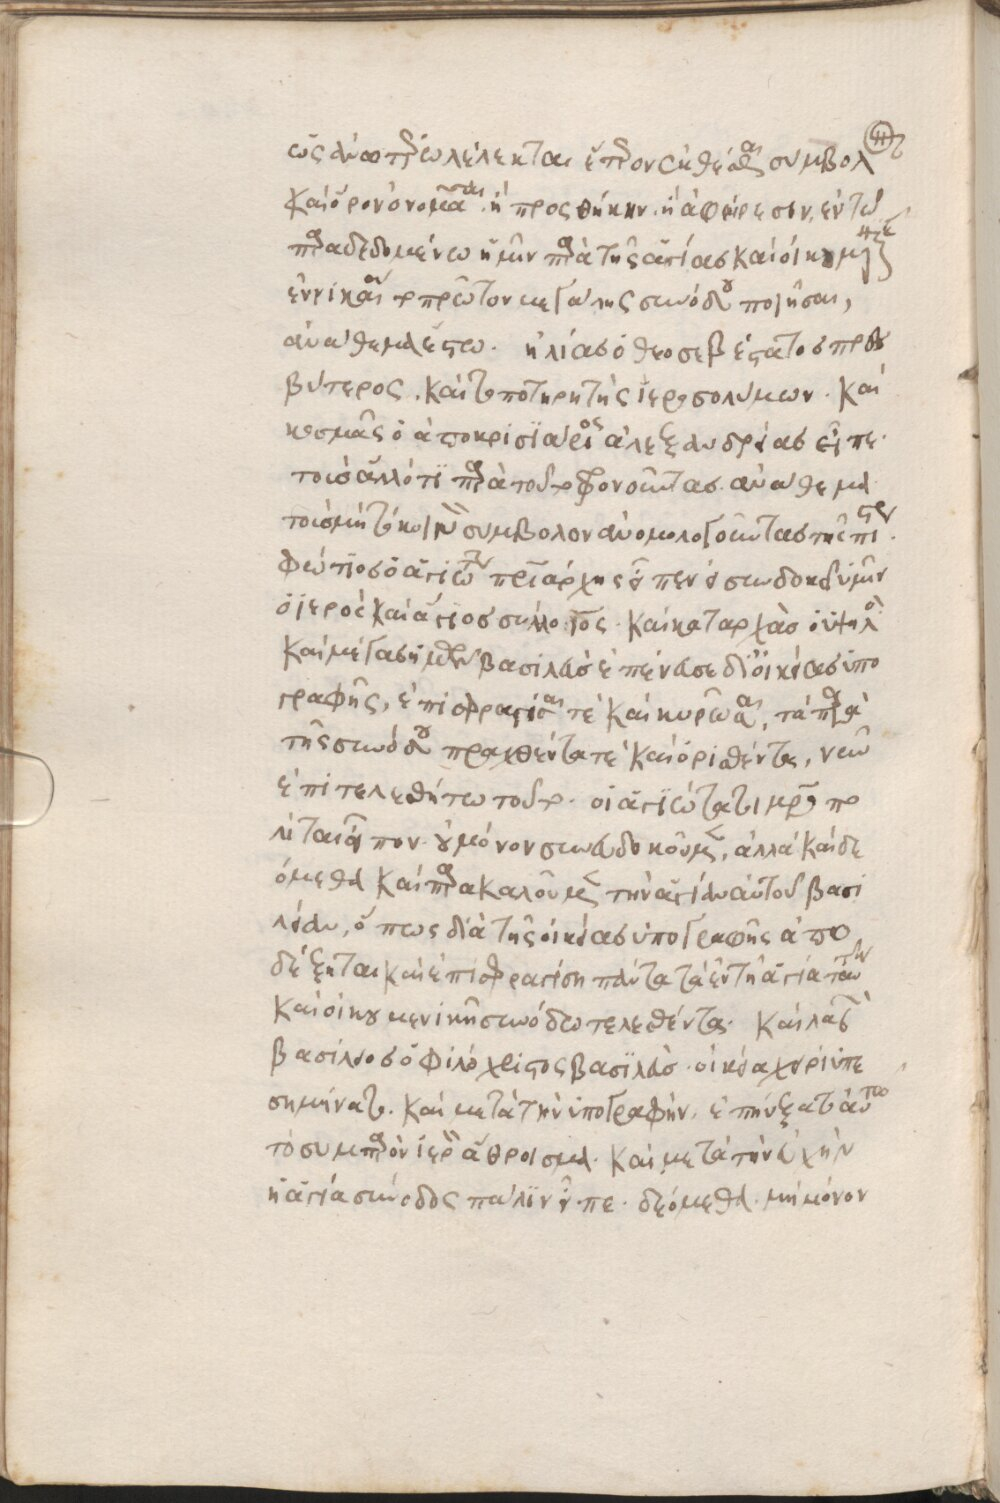 ὡς ἀνωτέρω λέλεκται ἕτερον ἐκθέσθαι σύμβολον
καὶ ὅρον ὀνομάσαι. ἢ προσθήκην. ἢ ἀφαίρεσιν, ἐν τῷ
παραδεδομένῳ ἡμῖν παρὰ τῆς ἁγίας καὶ οἰκουμενικῆς
ἐν νικαίᾳ τὸ πρῶτον μεγάλης συνόδου ποιῆσαι,
ἀνάθεμα ἔστω. ἠλίας ὁ θεοσεβέστατος πρεσ
βύτερος, καὶ τοποτηρητὴς ἱεροσολύμων. καὶ
κοσμᾶς ὁ ἀποκρισιάριος ἀλεξανδρείας εἶπε.
τοῖς ἄλλό τι παρὰ τοῦτο φρονοῦντας ἀνάθεμα
τοῖς μὴ τὸ κοινὸν σύμβολον ἀνομολογοῦντας τῆς πίστεως.
φώτιος ὁ ἁγιώτατος πατριάρχης εἶπεν εἰ συνδοκεῖ ὑμῖν
ὁ ἱερὸς καὶ ἅγιος σύλλογος. καὶ καταρχὰς ὁ ὑψηλὸς
καὶ μέγας ἡμῶν βασιλεὺς ἐπένευσε δι' οἰκείας ὑπο
γραφῆς, ἐπισφραγίσαι τὲ καὶ κυρῶσαι, τὰ παρὰ
τῆς συνόδου πραχθέντα τὲ καὶ ὁρισθέντα, νῦν
ἐπιτελεσθήτω τοῦτο. οἱ ἁγιώτατοι μητροπο
λῖται εἶπον. οὐ μόνον συνευδοκοῦμεν, ἀλλὰ καὶ δε
όμεθα καὶ παρακαλοῦμεν τὴν ἁγίαν αὐτοῦ βασι
λείαν, ὅπως διὰ τῆς οἰκείας ὑπογραφῆς ἀπο
δέξηται καὶ ἐπισφραγίση πάντα τὰ ἐν τῇ ἁγίᾳ ταύτῃ
καὶ οἰκουμενικῇ συνόδῳ τελεσθέντα. καὶ
βασίλειος ὁ φιλόχριστος βασιλεὺς. οἰκείᾳ χειρὶ ὑπε
σημήνατο. καὶ μετὰ τὴν ὑπογραφὴν, ἐπηύξατο αὐτῷ
τὸ συμπαρὸν ἱερὸν ἄθροισμα. καὶ μετὰ τὴν εὐχὴν
ἡ ἁγία σύνοδος πάλιν εἶπε. δεόμεθα. μὴ μόνον